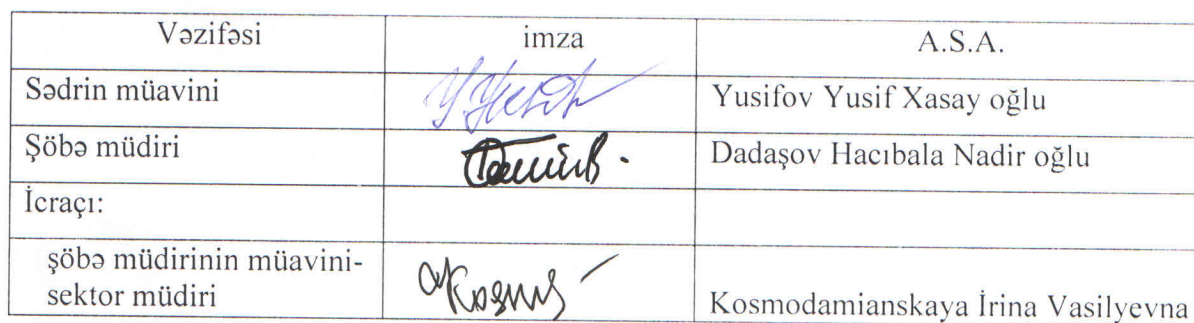 Vəzifəsi imza A.S.A.
Sədrin müavini Yusifov Yusif Xasay oğlu
Şöbə müdiri Dadaşov Hacıbala Nadir oğlu
İcraçı:
şöbə müdirinin müavini-
sektor müdiri Kosmodamianskaya İrina Vasilyevna